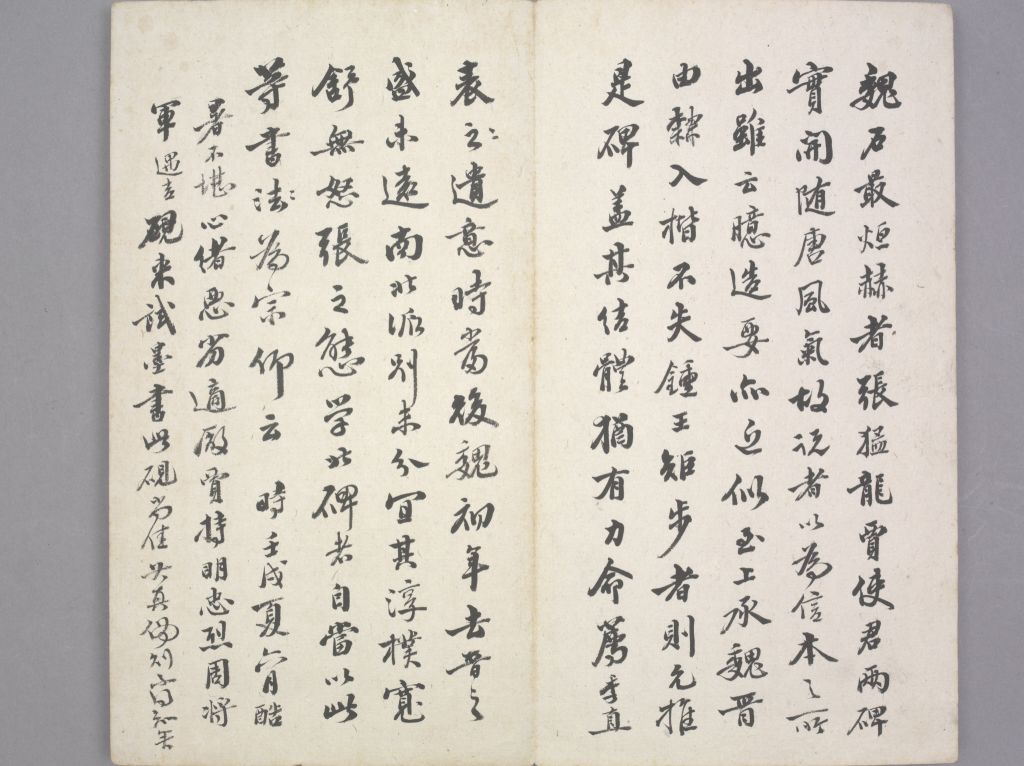 魏石最烜赫者張猛龍賈使君兩碑
實開隨唐風氣故説者以為信本之所
出雖云臆造要亦近似至上承魏晋
由隸入楷不失鍾王矩步者則允推
是碑盖其結體猶有力命薦季直
表之遺意時當後魏初年去晋之
盛未遠南北派別未分宜其淳樸寬
舒無怒張之態学北碑者自當以此
等書法為宗仰云 時壬戌夏六月酷
暑不堪心緒惡劣適殿賈持明忠烈周將
軍遇吉硯来試墨書此硯尚佳其真偽則